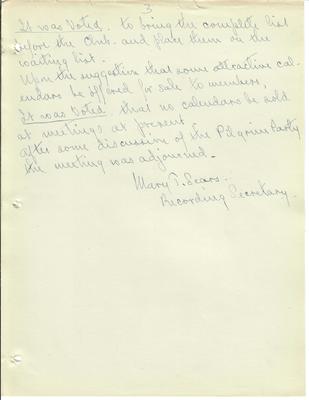 3
It was Voted. to bring the complete list
before the Club. and place them on the
waiting list.
Upon the suggestion that some attractive cal-
endars be offered for sale to members,
It was Voted, that no calendars be sold
at meetings at present.
After some discussion of the Pilgrim Party
the meeting was adjourned.
Mary T. Sears.
Recording Secretary.